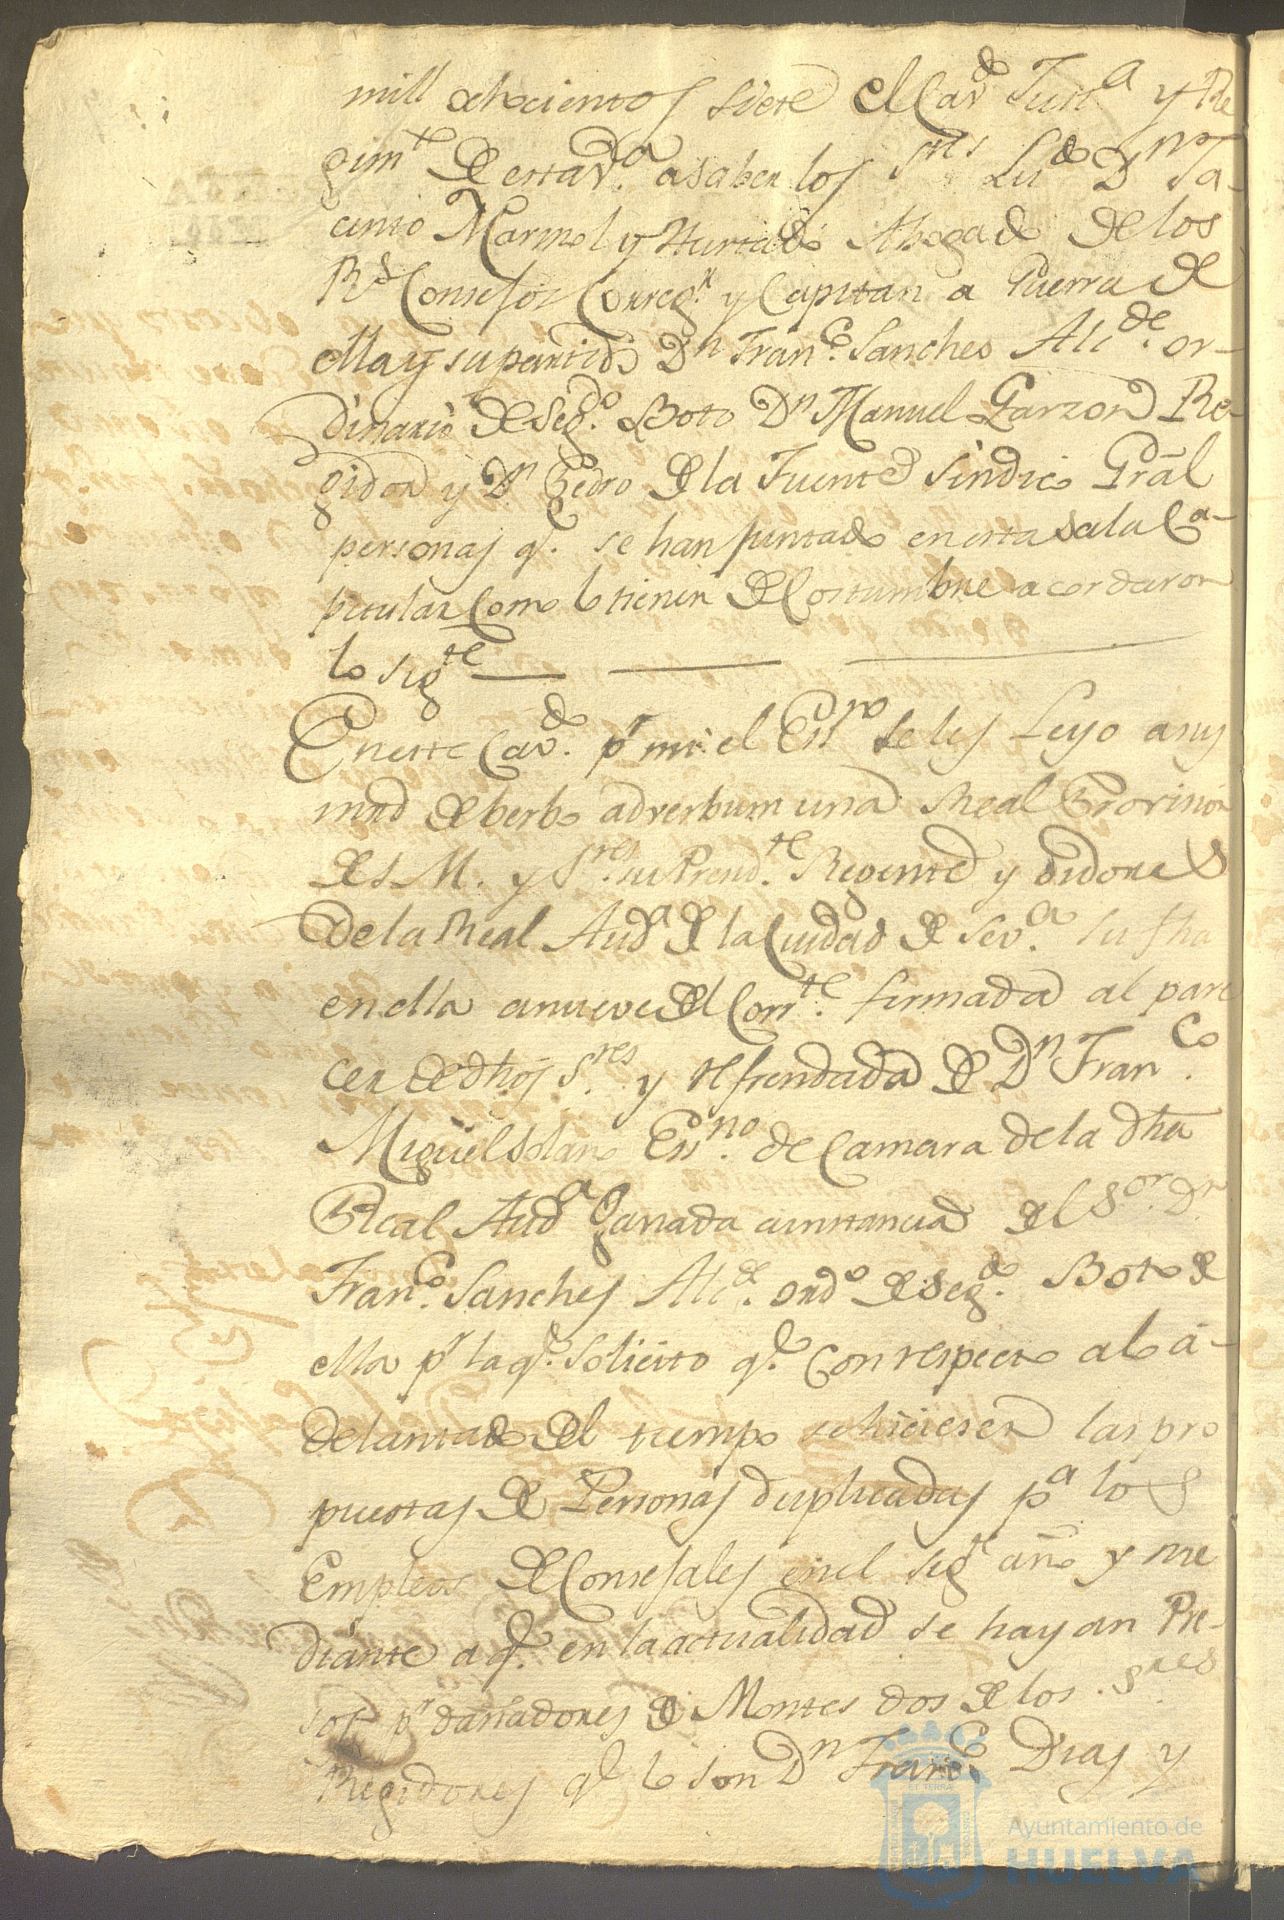 mill ochocientos siete el Cavdo. Justa. y Re
gimte. de esta va. a saber los Sres Licdo Dn. Ja-
cinto Marmol y Hurtado Abogado de los
Rs. Consejos Corregr. y Capitan a Guerra de
ella y su partido Dn Franco. Sanches Alcde. or-
dinario de segdo. Boto Dn Manuel Garzon Re-
gidor y Dn Pedro de la Fuente Sindico Gràl
personas q. se han juntado en esta sala Ca-
pitular como lo tienen de costumbre acordaron
lo sigte
En este Cavdo. pr mi el Essno se les Leyo a sus
mrd de berbo adverbum una Real Provision
de S. M. y Sres. su Presidte. Regente y Oidores
de la Real Auda de la Ciudad de Seva. su fha
en ella a nueve del Corrte. firmada al pare
cer de dhos Sres. y refrendada de Dn Franco.
Miguel Solano Essno. de Camara de la dha
Real Auda ganada a instancia del Sor. Dn
Franco. Sanches Alcde. ordo de segdo. Boto de
ella pr la q. solicito q. con respecto a lo a-
delantado del tiempo se hiciesen las pro
puestas de Personas duplicadas pa los
Empleos de Consejales en el sigte año y me
diante a q. en la actualidad se hayan Pre-
sos pr dañadores de Montes dos de los Sres
Regidores q. lo son Dn Franco. Dias y
Ayuntamiento de
HUELVA